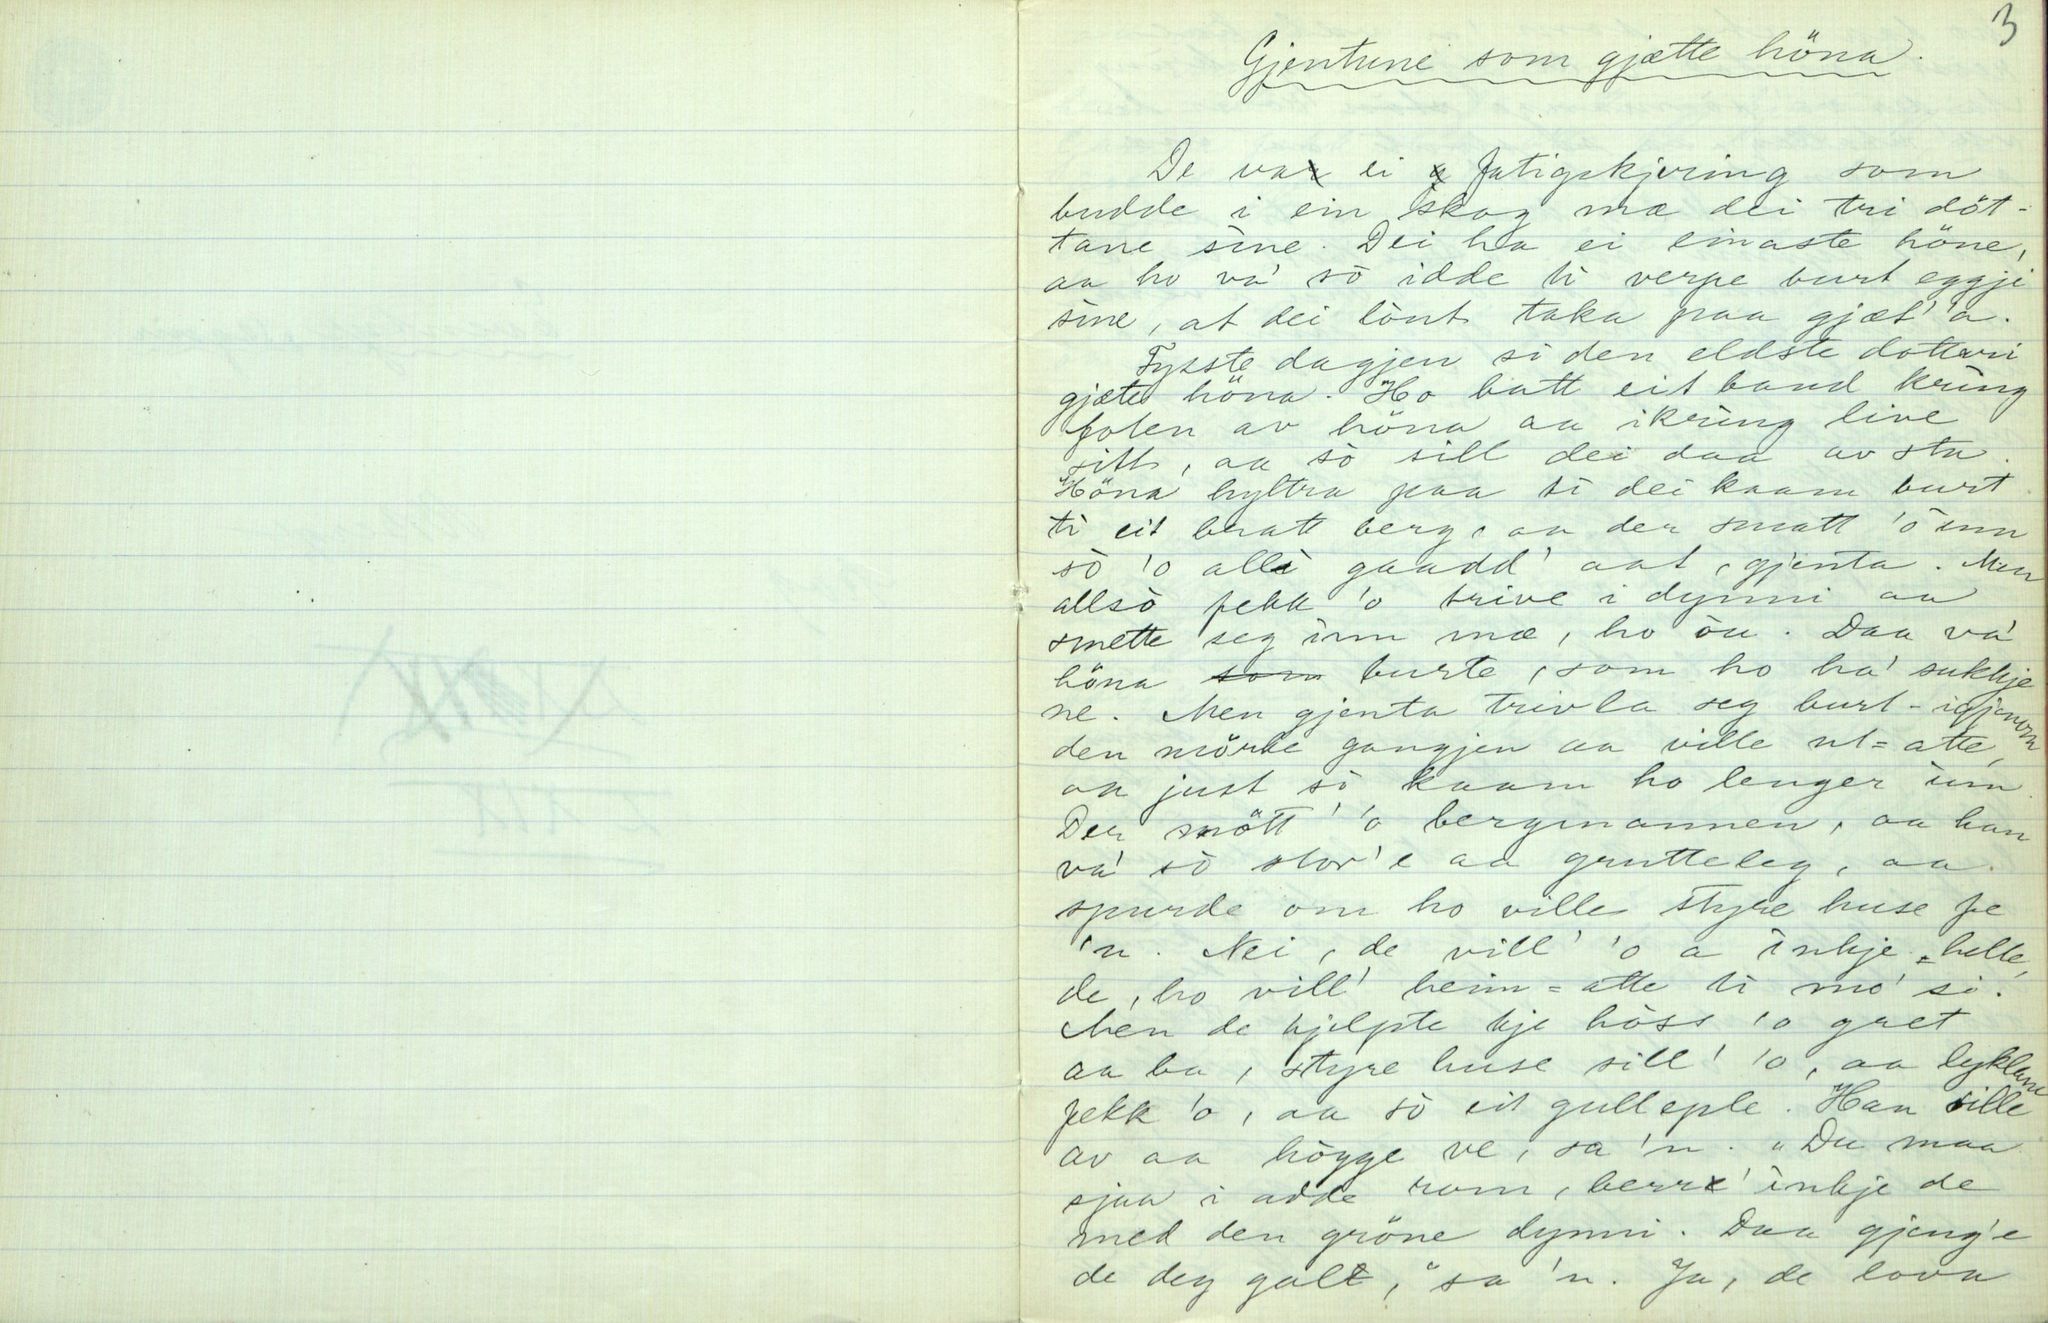 3
Gjentune som gjætte höna.
De va ei fatigskjering som
budde i ein skog mæ dei tri döt-
tane sine. Dei ha ei einaste höne,
aa ho va' sò idde ti verpe burt eggji
sine, at dei lònt taka paa gjæt' 'a.
Fysste dagjen sì den eldste dotteri
gjæte höna. Ho batt eit band kring
foten av höna aa ikring live
sitt, aa sò sill dei daa av sta.
Höna hyltra paa ti dei kaam burt
ti eit bratt berg, aa der smatt 'o inn
sò 'o alli gaadd' aat, gjenta. Men
allsò fekk 'o trive i dynni aa
smette seg inn mæ, ho òu. Daa va'
höna burte, som ho ha' sukkje
ne. Men gjenta trivla seg burt-igjenom
den mörke gangjen aa ville ut=atte,
aa just sò kaam ho lenger inn.
Der mött' 'o bergmannen, aa han
va' sò stor'e aa grutteleg, aa
spurde om ho ville styre huse fe
'n. Nei, de vill' 'o a inkje helle,
de, ho vill' heim=atte ti mo' si.
Men de hjelpte kje hòss 'o gret
aa ba, styre huse sill' 'o, aa lyklane
fekk 'o, aa sò eit gulleple. Han sille
av aa högge ve, sa 'n. "Du maa
sjaa i adde rom, berre' inkje de
med den gröne dynni. Daa gjeng'e
de deg galt," sa 'n. Ja, de lova